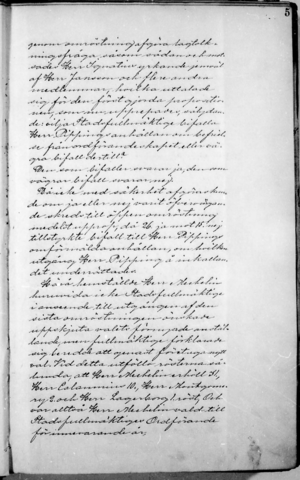 5
genom omröstning afgöra lagtolk-
ningsfråga, såsom sådan och motsades
Herr Ignatius yrkande jemväl
af Herr Jansson och flere andra
medlemmar, hvilka uttalade
sig för den först gjorda propositio-
nen, som nu upprepades,
Stadsfullmäktige bifalla
Herr Pippings anhållan om befriel-
se från ordförandeskapet eller vä-
gra bifall dertill?
Den som bifaller svarar ja, den som
vägrar bifall svarar nej.
Då icke med säkerhet afgöras kun-
de om ja eller nej varit öfvervägan-
de skreds till öppen omröstning
medelst upprop, då 26 ja mot 15 nej
tillstyrkte bifall till Herr Pippings
omförmälda anhållan, om hvilken
utgång Herr Pipping å inkallan-
det underrättades.
Härå hemställde Herr Mechelin
huruvida icke Stadsfullmäktige
i anseende till utgången af den
sista omröstningen önskade
uppskjuta valet
men fullmäktige förklarade
sig beredda att genast företaga nytt
val. Vid detta utföllo rösterna så-
lunda, att Herr Mechelin erhöll 31,
Herr Calamnius 10, Herr Montgome-
ry 2 och Herr Lagerborg 1 röst, Och
var alltså Herr Mechelin vald till
Stadsfullmäktiges Ordförande
för innevarande år.